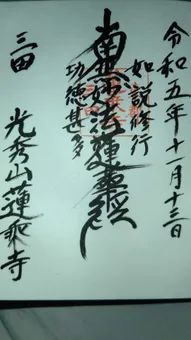 令和五年十一月十三日
如説修行
南無妙法蓮華経
功徳甚多
三田 光秀山蓮乗寺